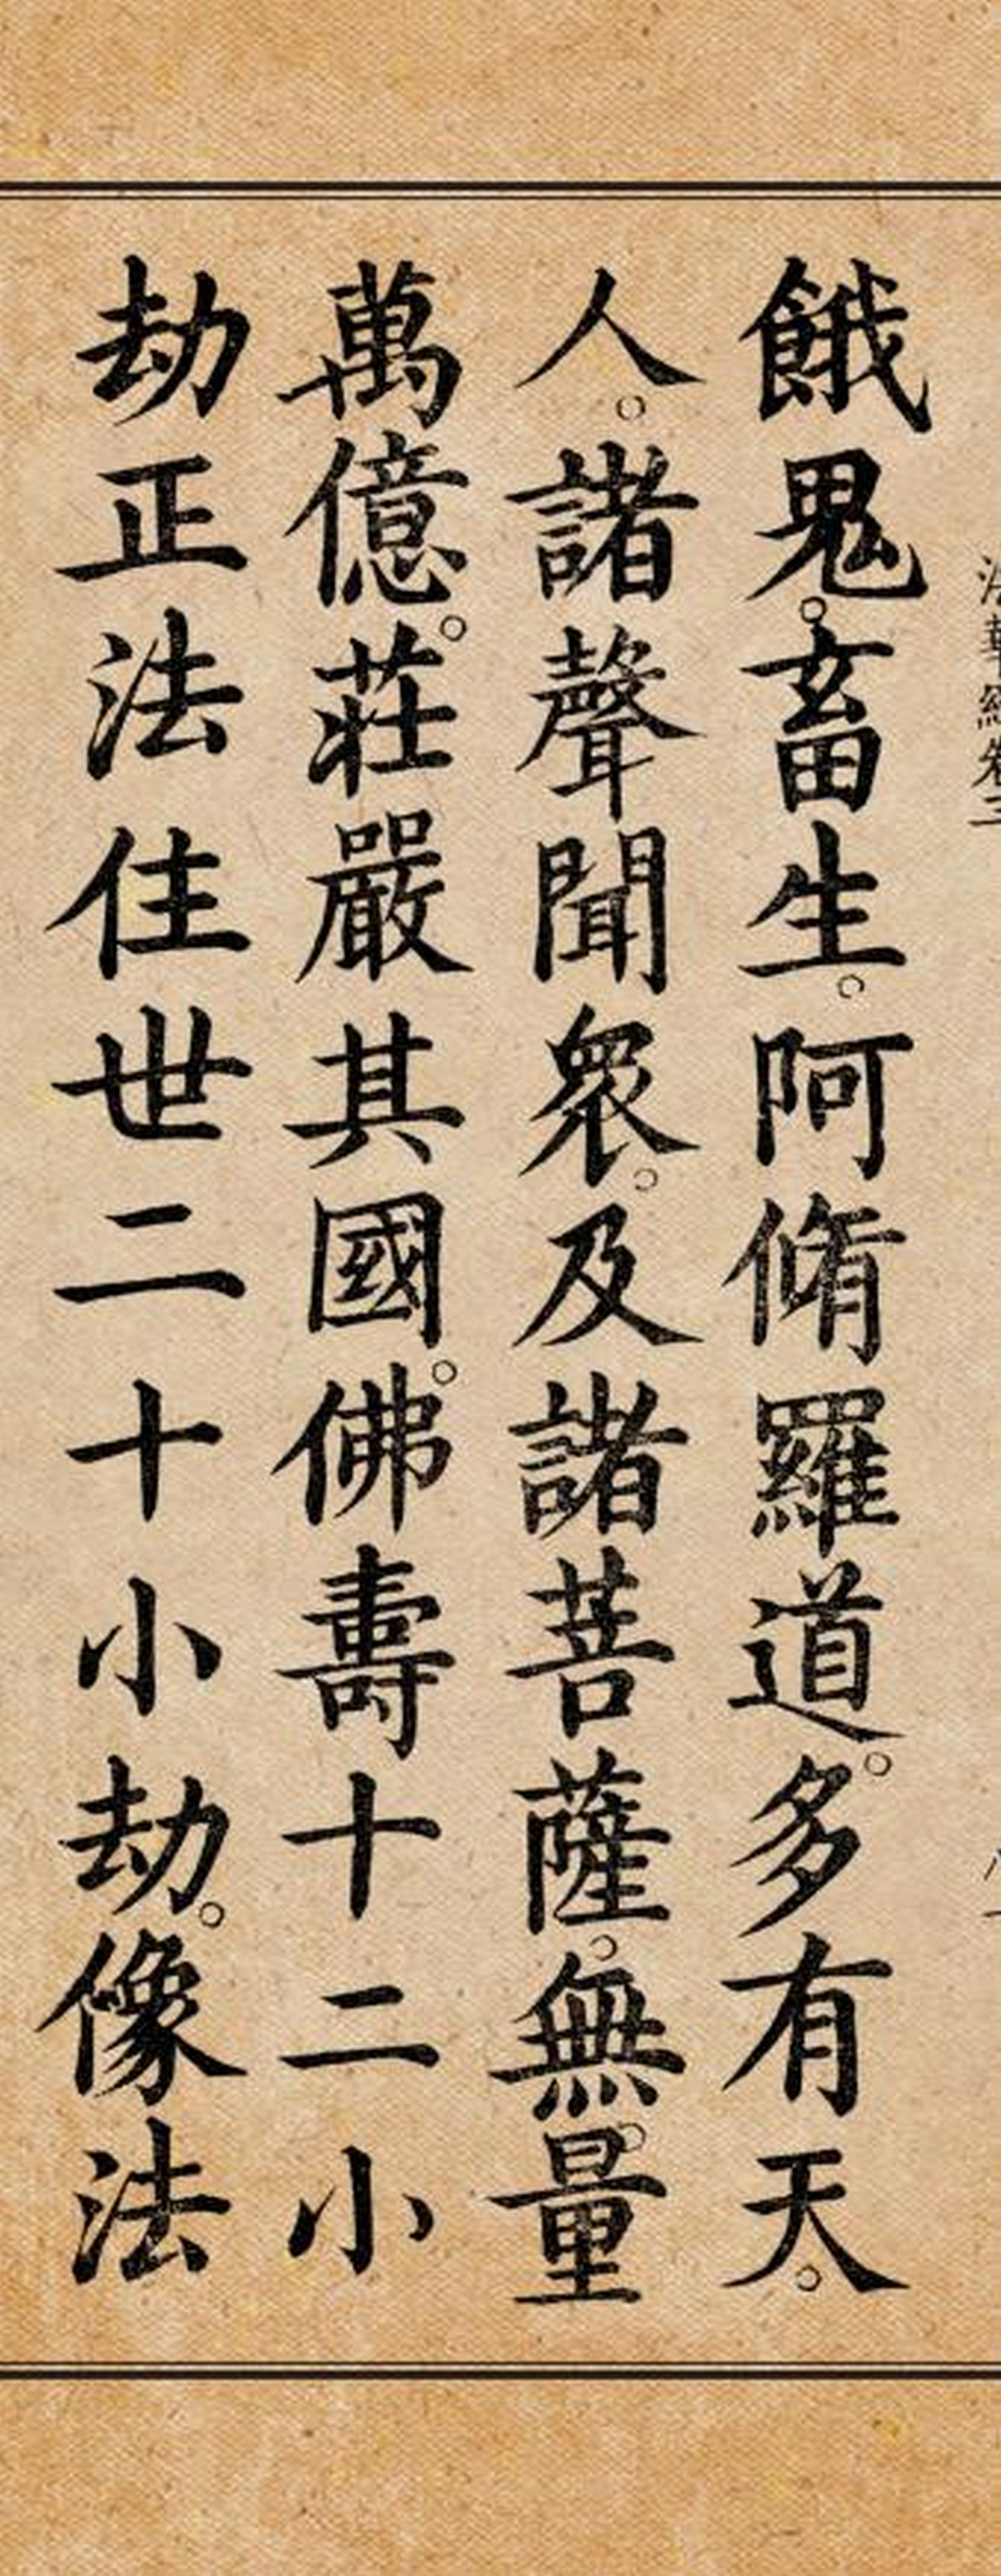 法華經卷三
餓鬼。畜生。阿脩羅道。多有天。
人。諸聲聞眾。及諸菩薩。無。量
萬億。莊嚴其國。佛壽十二小
劫正法住世二十小劫。像法